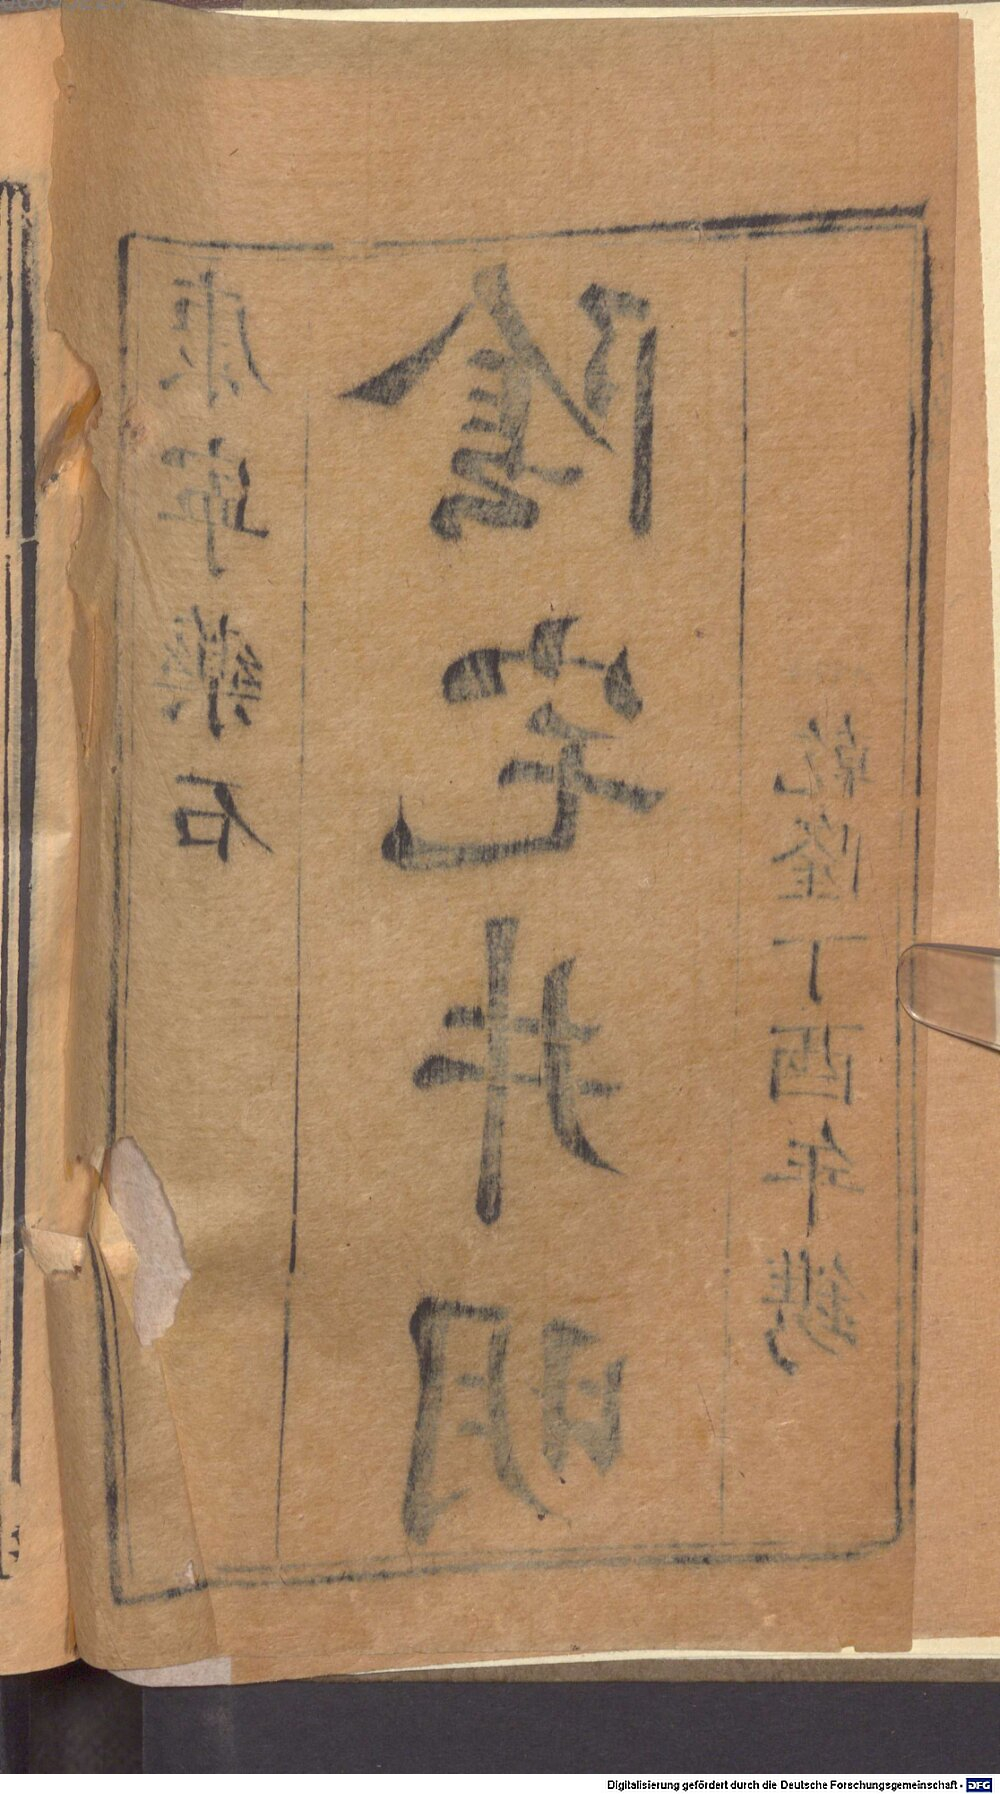 石
陰宅井明
乾隆丁酉年鐫
Digitalisierung gefördert durch die Deutsche Forschungsgemeinschaft - DFG